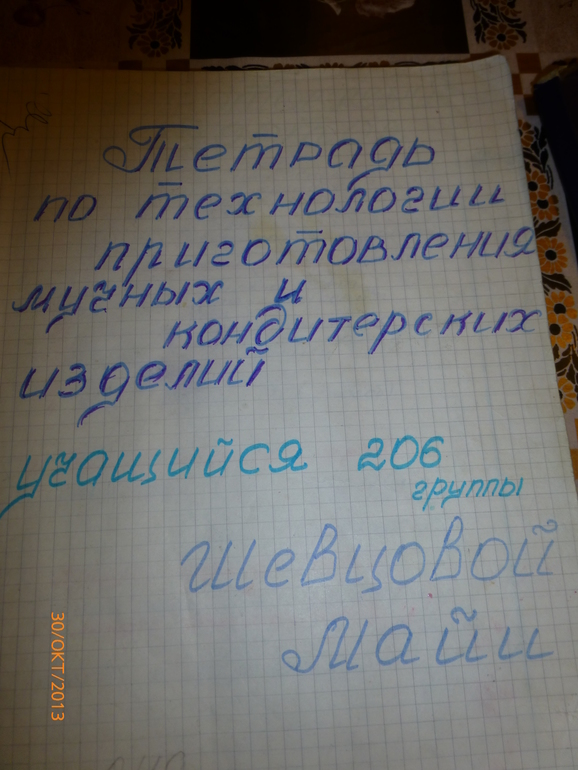 Тетрадь
по технологии
приготовления
мучных и
кондитерских
изделий
учащийся 206
группы
Шевцовой
Майи
30/ОКТ/2013